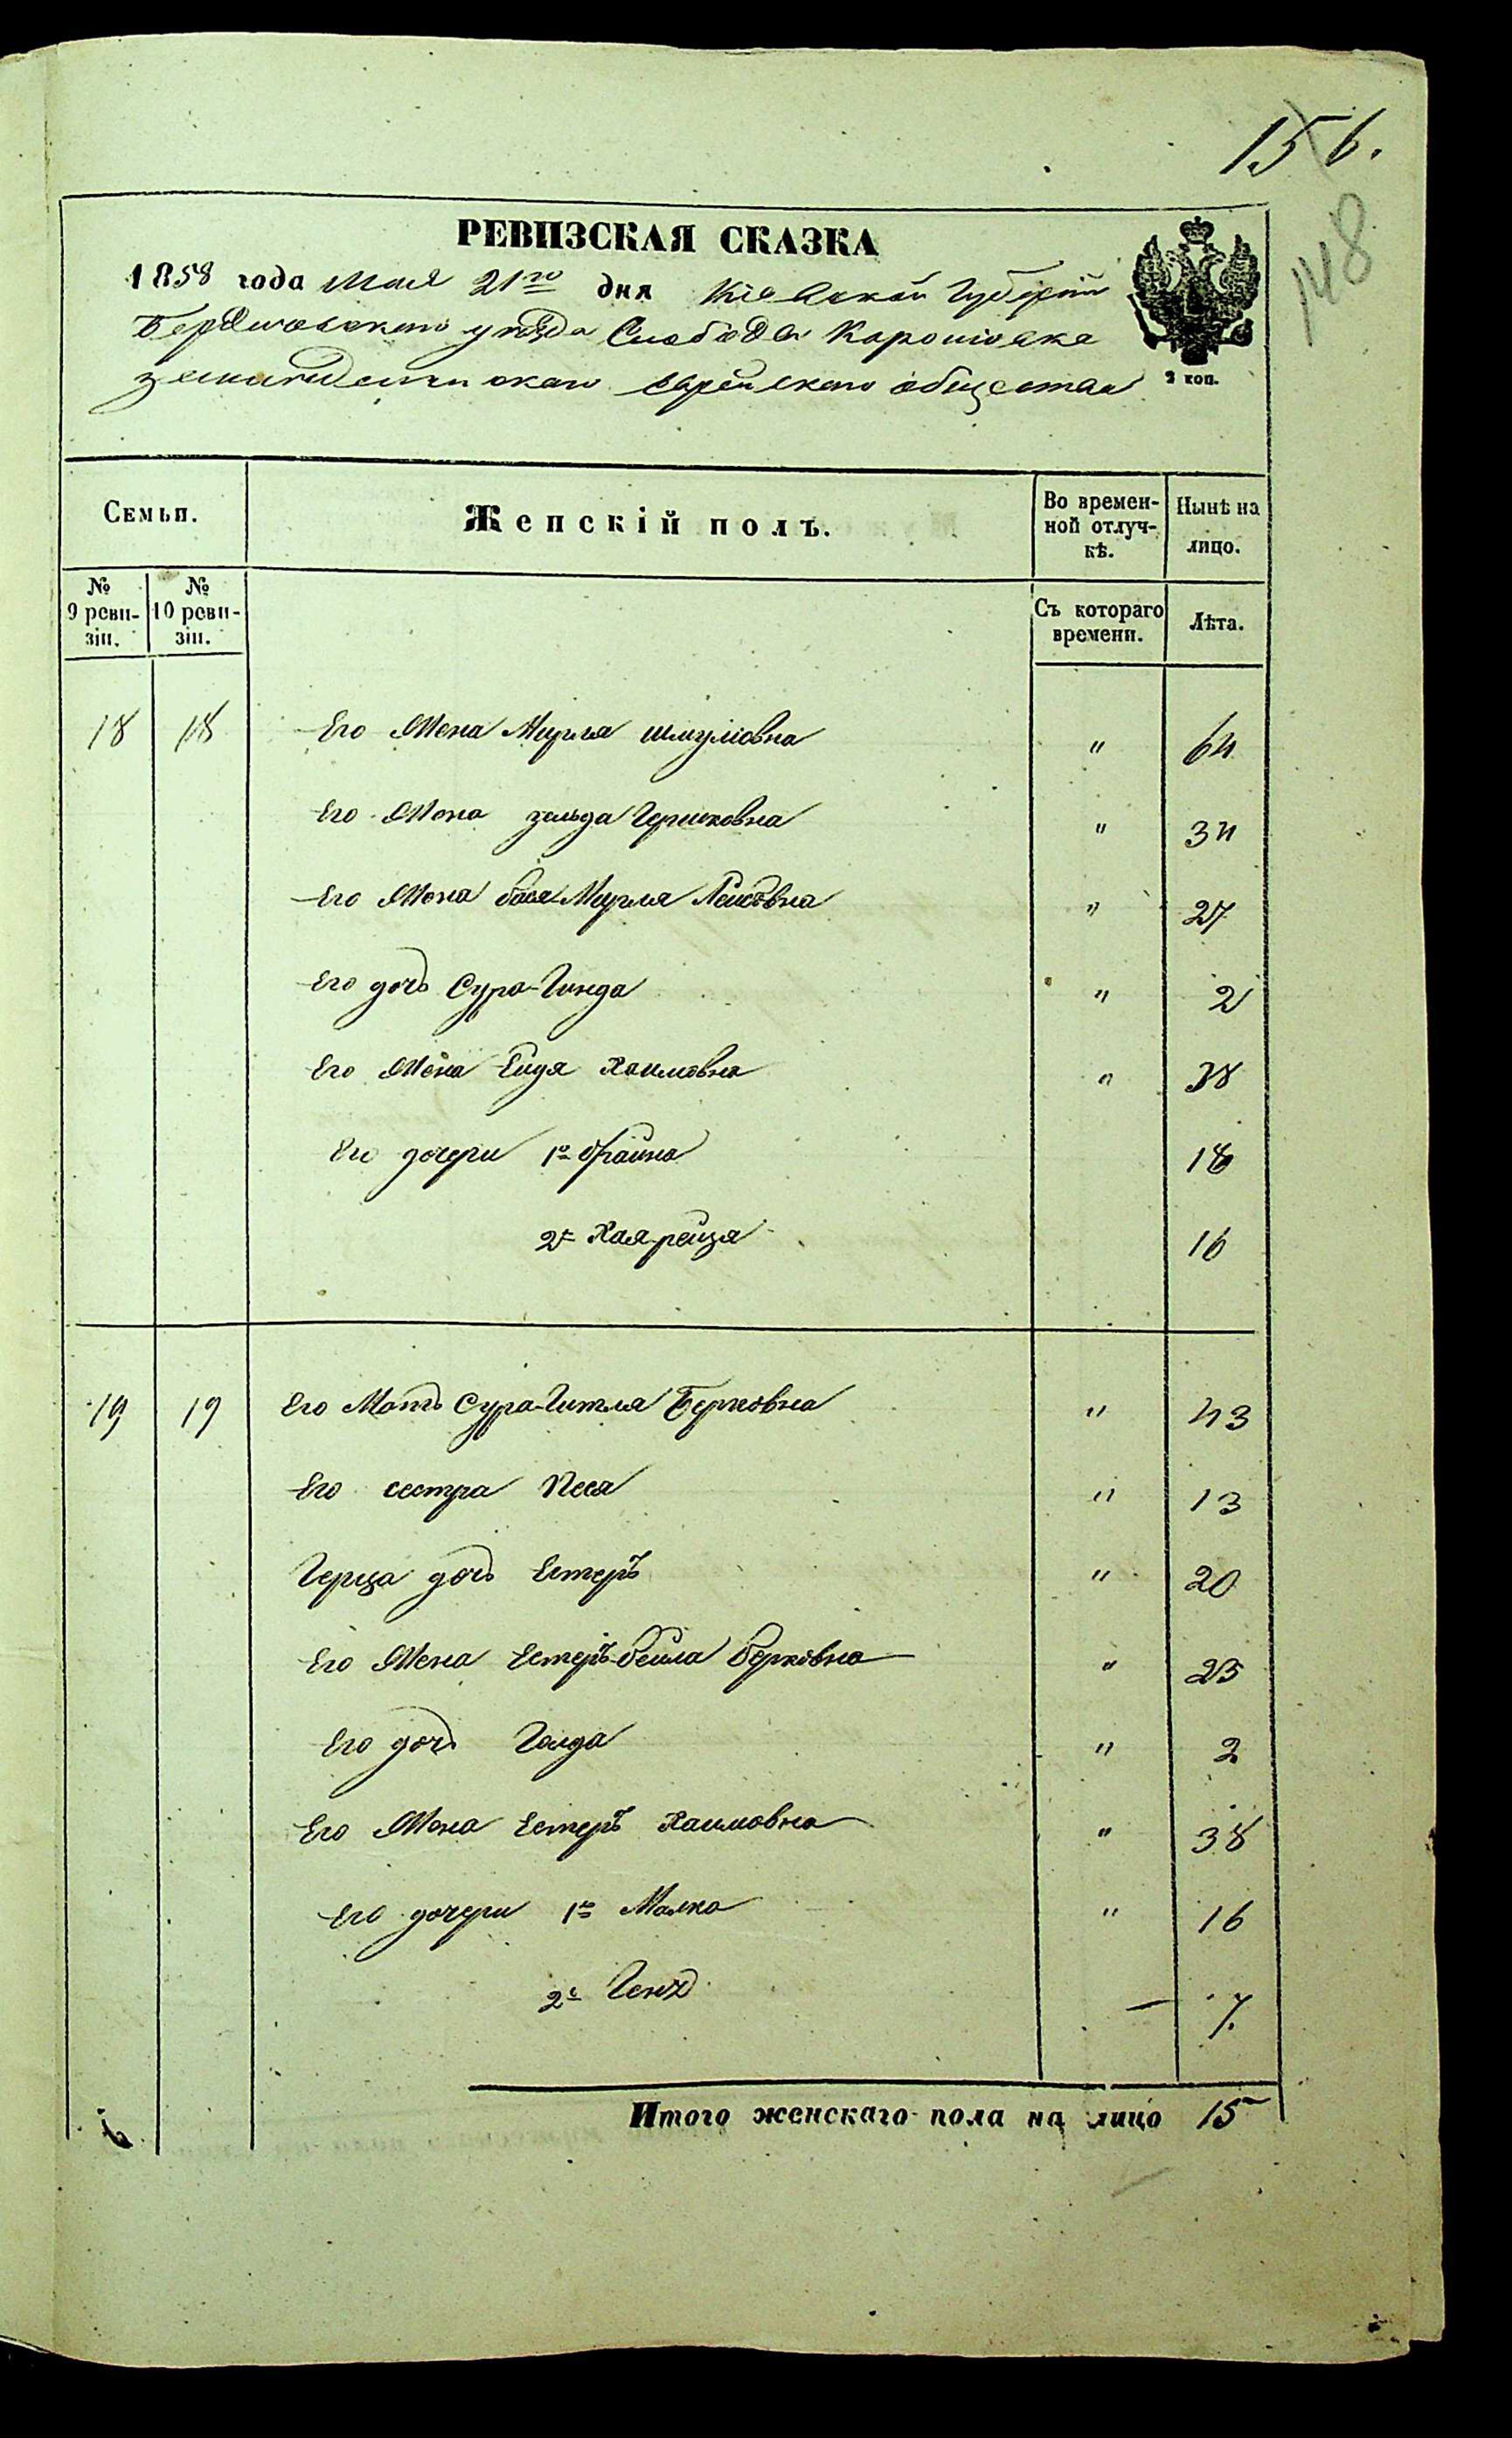 156.
148
РЕВИЗСКАЯ СКАЗКА
1858 года Мая 21го дня Кіевской Губерніи
Бердичевскаго уѣзда Слобода
еврейскаго общества
2 коп.
Семьи. Женскій полъ. Во времен-ной отлуч-кѣ. Нынѣ на лицо.
№ 9 реви-зіи. № 10 реви-зіи. Съ котораго времени. Лѣта.
18 18 Его Жена Мирля Шмулiовна " 64
Его Жена Зельда Гершковна " 34
Его Жена Бася-Мирля Лейбовна " 27
Его дочь Сура-Гинда " 2
Его Жена Хаимовна " 38
Его дочери 1я Фрайна 18
2я Хая-рейзя 16
19 19 Его Мать Сура-Гитля Берковна " 43
Его сестра Песя " 13
Герца дочь Естеръ " 20
Его Жена Естеръ-бейла Берковна " 23
Его дочь Голда " 2
Его Жена Естеръ Хаимовна " 38
Его дочери 1я Малка " 16
2я — 7.
Итого женскаго пола на лицо 15